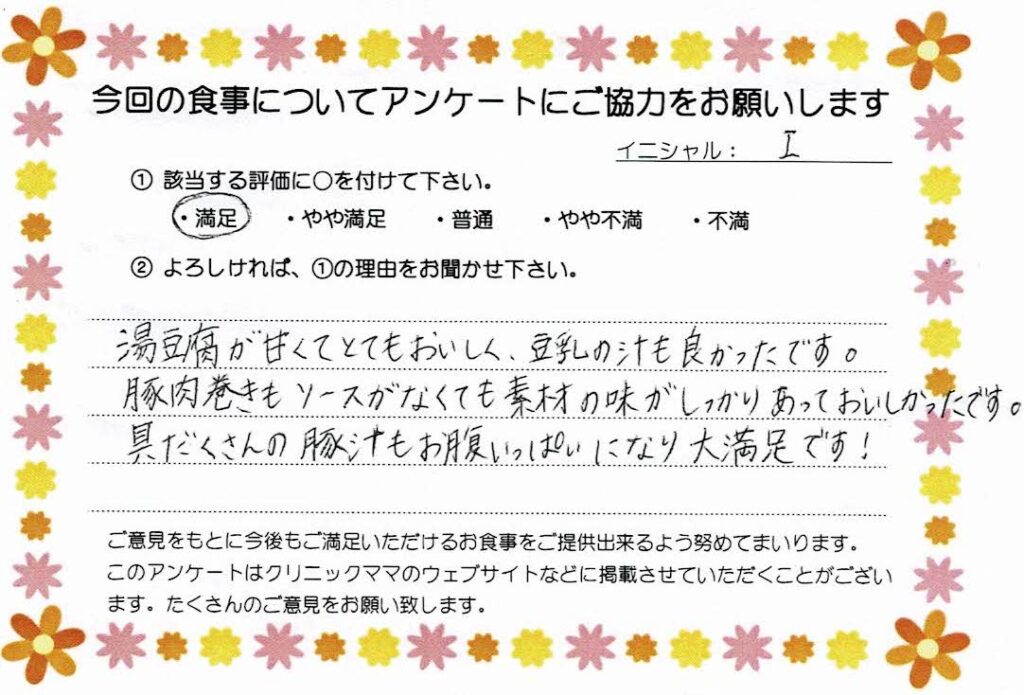 今回の食事についてアンケートにご協力をお願いします
イニシャル： I
① 該当する評価に○を付けて下さい。
・満足 ・やや満足 ・普通 ・やや不満 ・不満
② よろしければ、①の理由をお聞かせ下さい。
湯豆腐が甘くてとてもおいしく、豆乳の汁も良かったです。
豚肉巻きもソースがなくても素材の味がしっかりあっておいしかったです。
具だくさんの豚汁もお腹いっぱいになり大満足です！
ご意見をもとに今後もご満足いただけるお食事をご提供出来るよう努めてまいります。
このアンケートはクリニックママのウェブサイトなどに掲載させていただくことがござい
ます。たくさんのご意見をお願い致します。